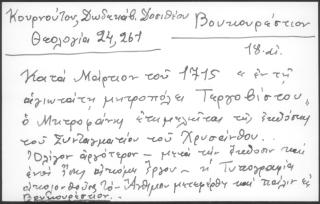 Κουρνούτου, Δωδεκάβ. Δοσιθέου
Θεολογία 24, 261
Βουκουρέστιον
18. αἰ.
Κατά Μάρκιον τοῦ 1715 « ἐν τῇ
ἁγιωτάτῃ μητροπόλει Τεργοβίστου »
ὁ Μητροφάνης ἐπιμελεῖται τῆς ἐκδόσεως
τοῦ Συνταγματίου τοῦ Χρυσάνθου..
Ὀλίγον ἀργότερον – μετά τήν ἔκδοσιν καί
ἑνός ἔργου – ἡ Τυπογραφία
τόν Ἄνθιμον μετεφέρθη καί πάλιν εἰς
Βουκουρέστιον.